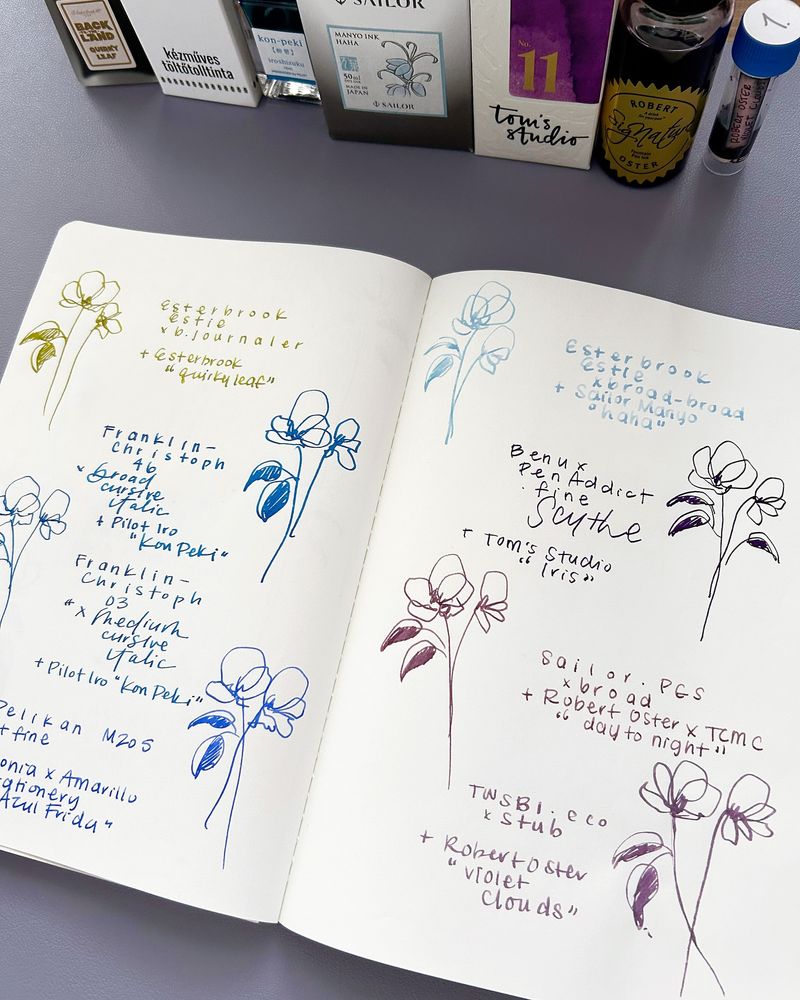 BACK
LAND
QUIRKY
LEAF
kézműves
töltőtolltinta
kon-peki
iroshizuku
SAILOR
MANYO INK
HAHA
50ml
MADE IN
JAPAN
SAILOR
No.
11
tom's
studio
ROBERT
Signature
Fountain
Pen Ink
OSTER
1.
ROBERT OSTER
VIOLET CLOUDS
Esterbrook
Estie
x b.journaler
+ Esterbrook
"quirky leaf"
Franklin-
Christoph
46
x broad
cursive
italic
+ Pilot Iro
"Kon Peki"
Franklin-
Christoph
03
"x medium
cursive
italic
+ Pilot Iro "Kon Peki"
Pelikan M205
+ fine
x Amarillo
Azul Frida"
Esterbrook
Estie
x broad-broad
+ Sailor Manyo
"haha"
Benu x
Pen Addict
. fine
Scythe
+ Tom's Studio
"Iris"
Sailor. PGS
x broad
+ Robert Oster x TCMC
"day to night"
TWSBI. eco
x Stub
+ Robert Oster
"violet
clouds"